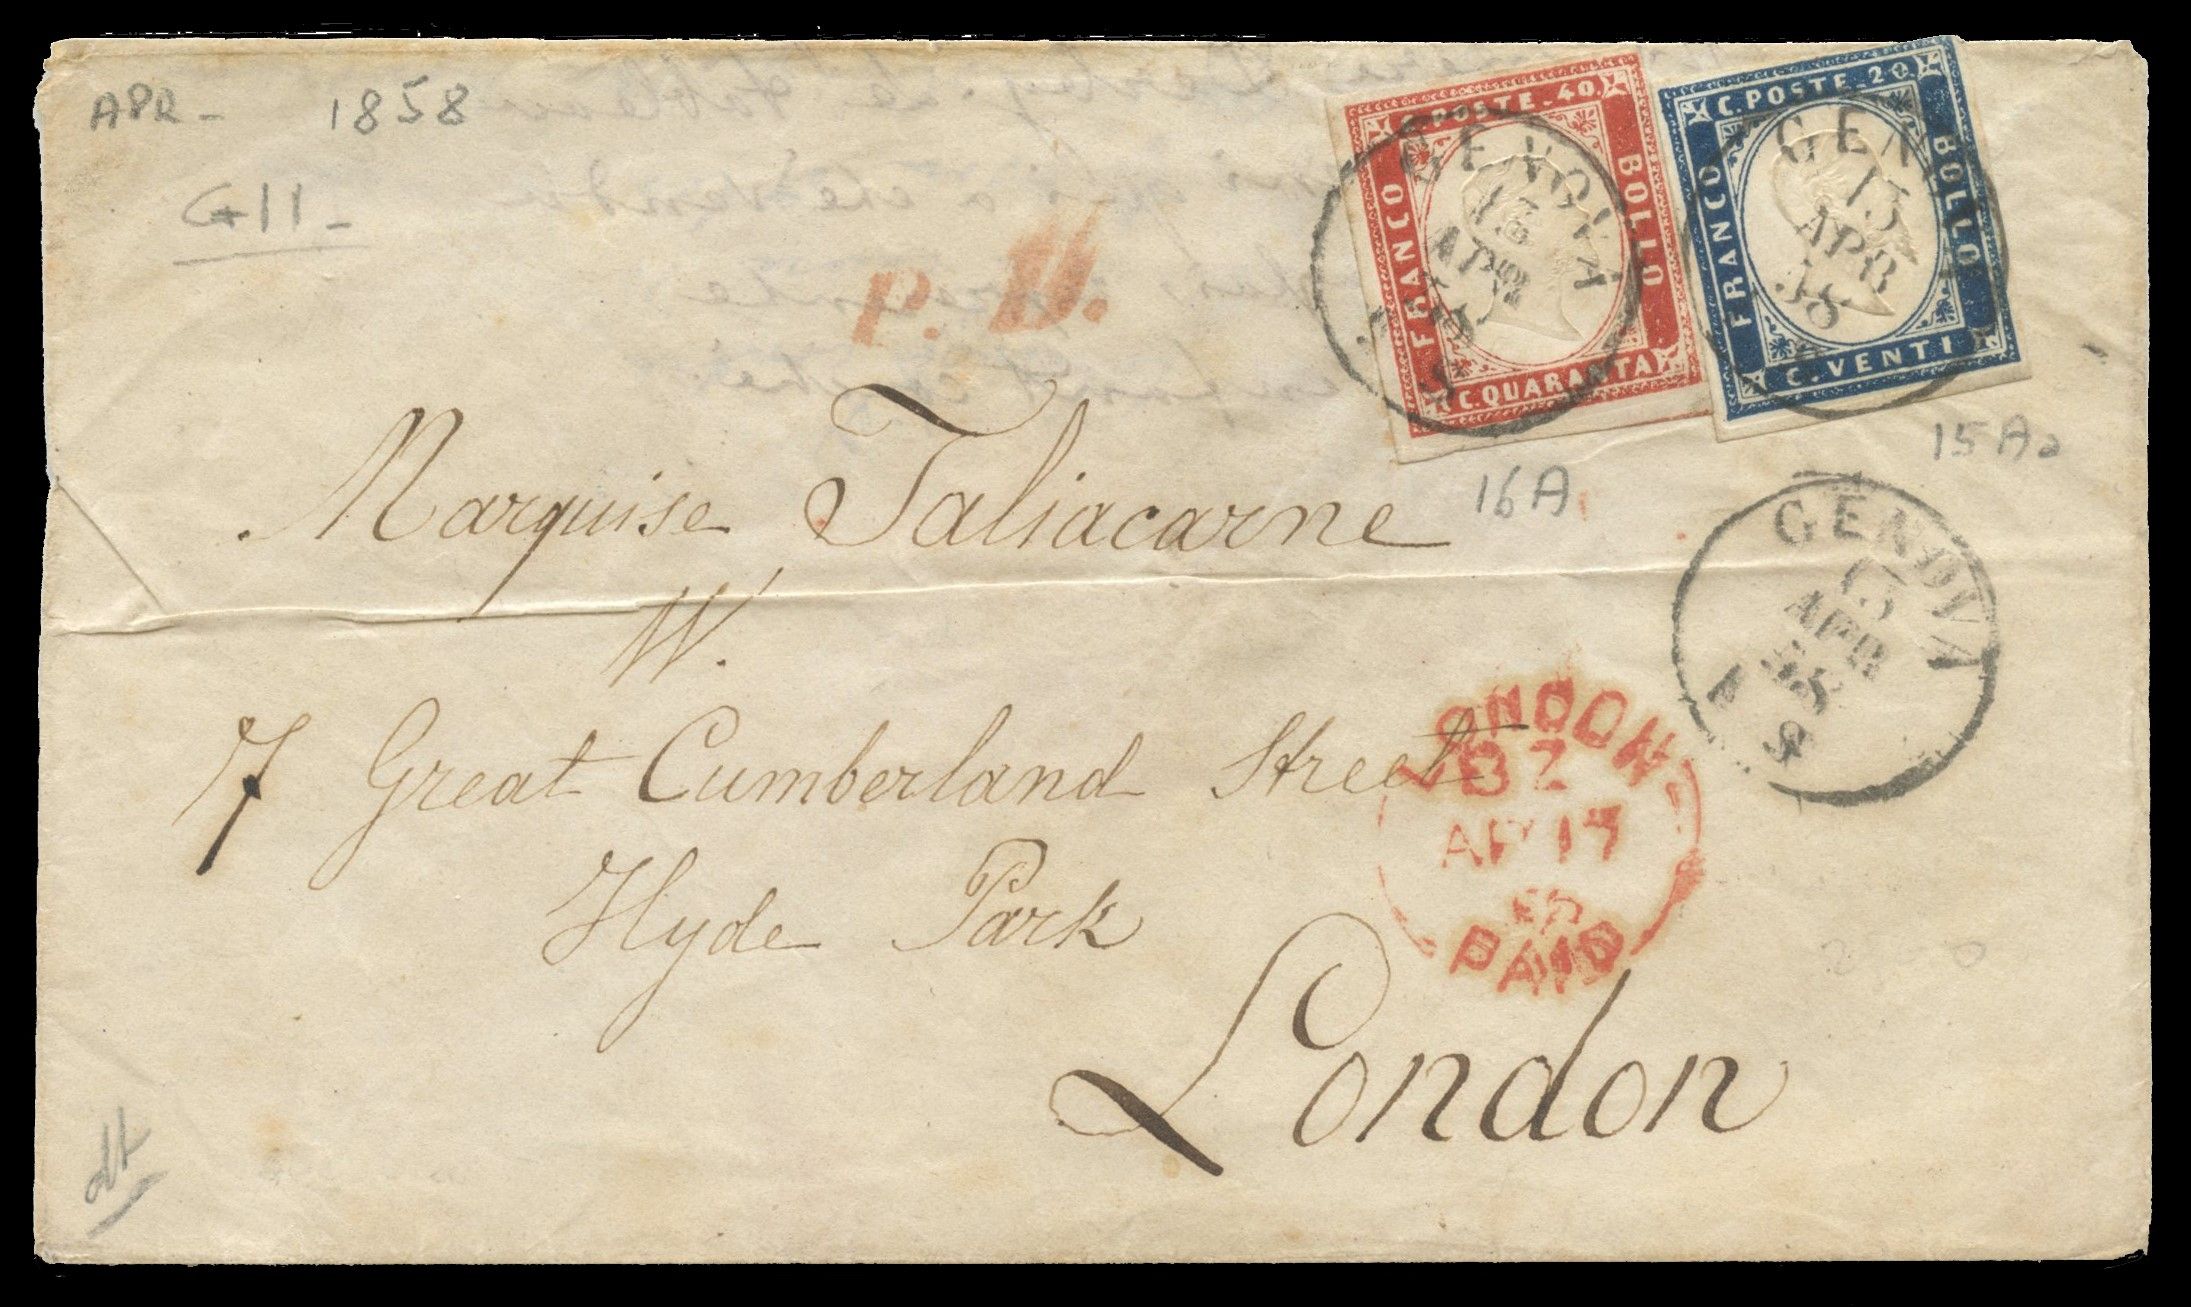 APR - 1858
G11 -
P. D.
C. POSTE. 40.
FRANCO
BOLLO
C. QUARANTA
GENOVA
15
APR
58
C. POSTE. 20
FRANCO
BOLLO
C. VENTI
GENOVA
15
APR
58
16A
15Aa
GENOVA
15
APR
58
Marquise Taliacarne
W.
7 Great Cumberland Street
Hyde Park
London
LONDON
BZ
AP 17
58
PAID